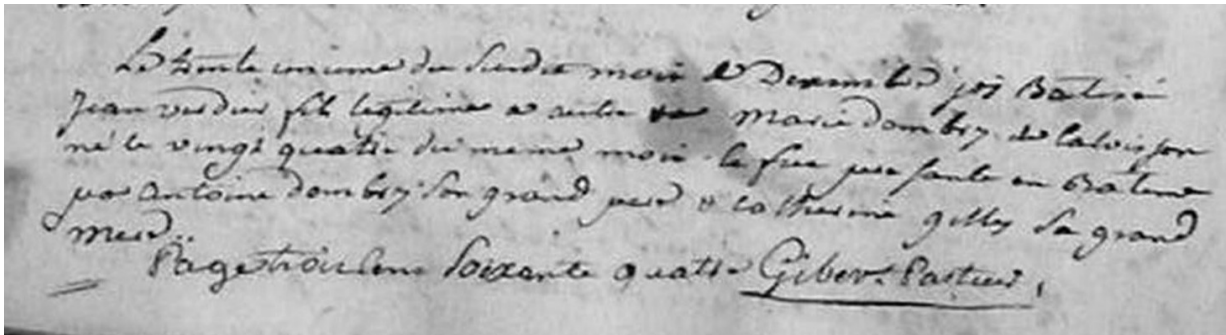 Le trente unieme du susdit mois de Decembre j'ai Batisé
Jean verdier fils legitime a autre de marie dombry de Calvisson
né le vingt quatre du meme mois la fue presanté au Bateme
par antoine dombry son grand pere & catherine gilly sa grand
mere..
Page trois Cens Soixante quatre Gibert Pasteur,